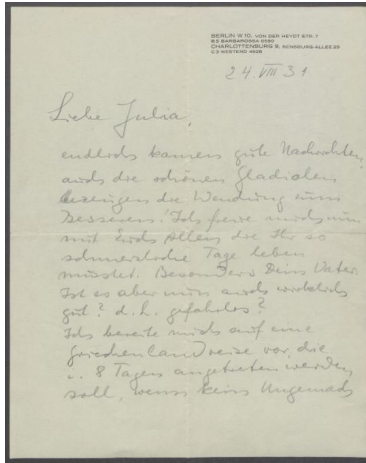 BERLIN W 10, VON DER HEYDT STR. 7
B 5 BARBAROSSA 0990
CHARLOTTENBURG 9, RENSBURG-ALLEE 25
C 3 WESTEND 4628
24. VIII 31
Liebe Julia,
endlich kamen gute Nachrichten,
auch die schönen Gladiolen
bezeugen die Wendung zum
Besseren! Ich freue mich nun
mit Euch Allen die Ihr so
schmerzliche Tage leben
musstet. Besonders Dein Vater.
Ist es aber nun auch wirklich
gut? d. h. gefahrlos?
Ich bereite mich auf eine
Griechenlandreise vor, die
8 Tagen angetreten werden
soll, wenn kein Ungemach